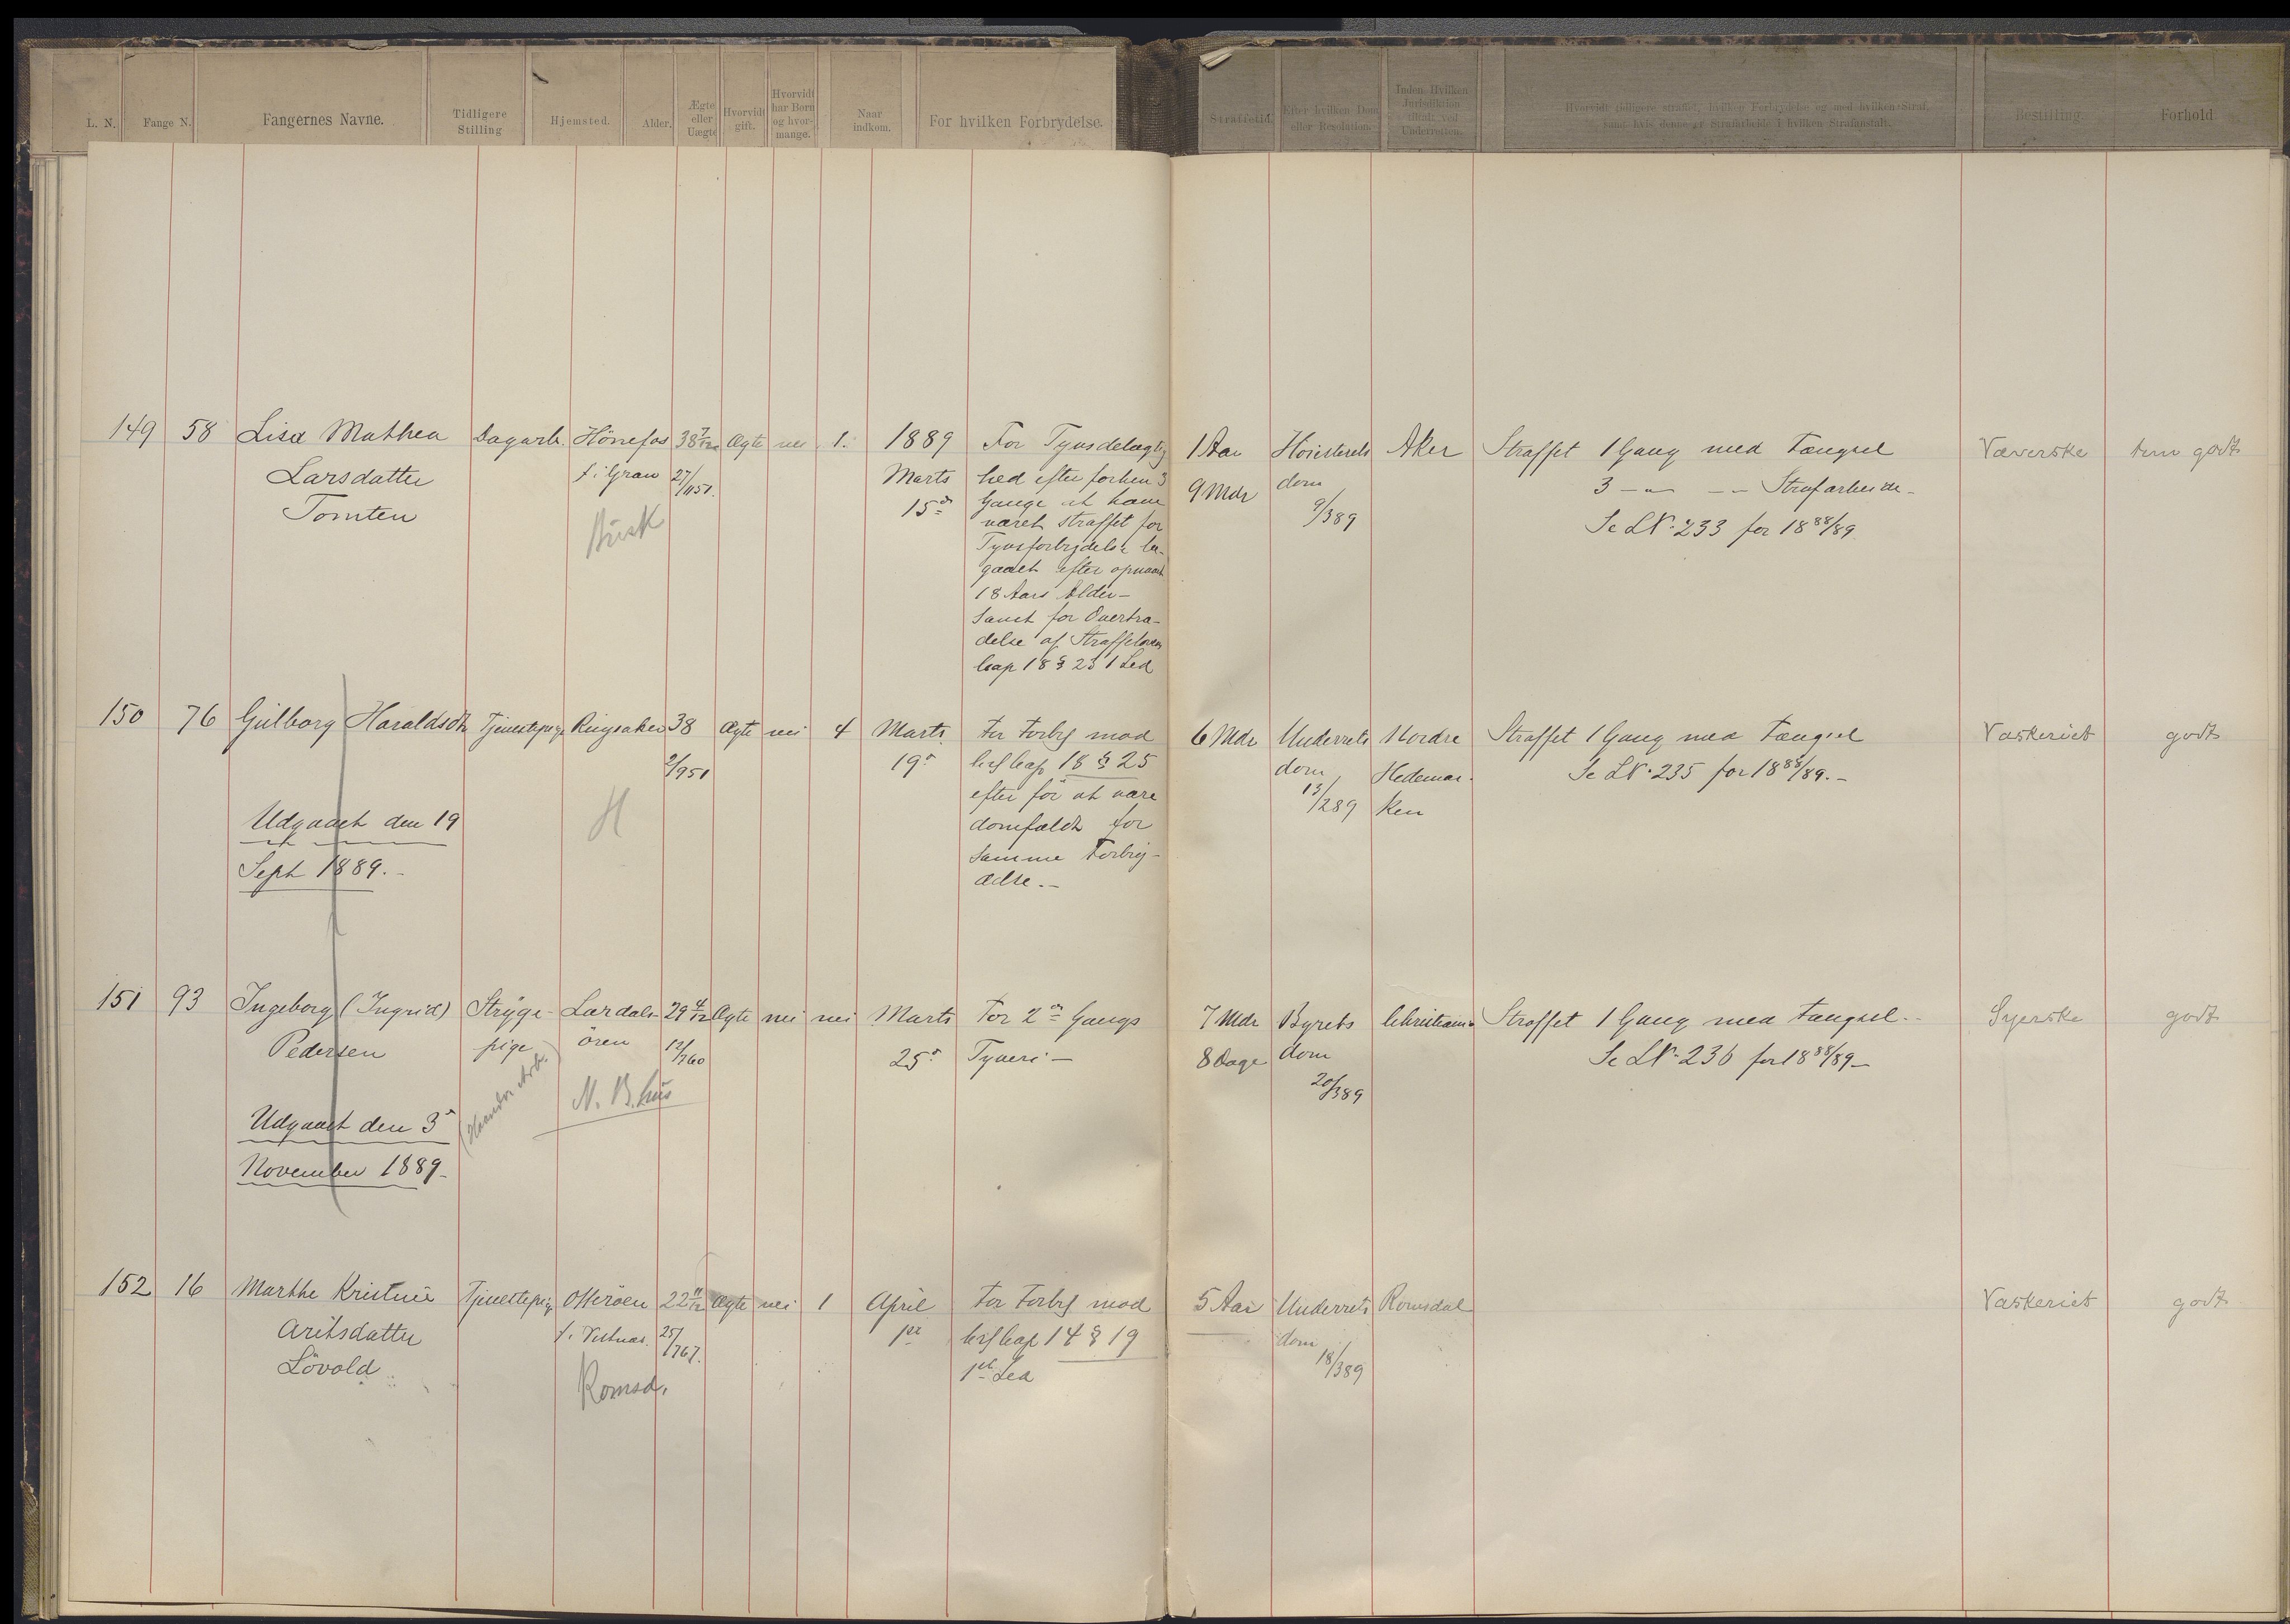 L. N. Fange N. Fangernes Navne. Tidligere Stilling Hjemsted. Alder. Ægte eller Uægte Hvorvidt gift. Hvorvidt har Børn og hvor-mange. Naar indkom. For hvilken Forbrydelse. Straffetid. Efter hvilken Dom eller Resolution. Inden Hvilken Jurisdiktion tiltalt ved Underretten. Hvorvidt tidligere straffet, hvilken Forbrydelse og med hvilken Straf, samt hvis denne er Strafarbeide i hvilken Strafanstalt. Bestilling. Forhold
149 58 Lisa Mathea Dagarb. Hönefos 38 7/12 Ægte nei 1. 1889 For Tyvsdelagtig 1 Aar Höiesterets Aker Straffet 1 Gang med Fængsel Væverske godt
Larsdatter f. i Gran 27/1151. Marts hed efter forhen 3 9 Mdr dom 3 –"– –"– Strafarbeide –
Tomten 15de Gange at have 9/389 Se LN. 233 for 1888/89.
Busk været straffet for
Tyvsforbrydelse be-
gaaet efter opnaaet
18 Aars Alder –
samt for Overtræ-
delse af Straffeloven
Cap 18 § 23 1 Led
150 76 Gulborg Haraldsdtr Tjenestepige Ringsaker 38 Ægte nei 4 Marts For Forbr mod 6 Mdr Underrets Nordre Straffet 1 Gang med Fængsel Vaskeriet godt
2/951 19de Crl Cap 18 § 25 dom Hedemar- Se LN. 235 for 1888/89. –
H efter før at være 13/289 ken
Udgaaet den 19 domfældt for
Sept 1889. – samme Forbry-
delse. –
151 93 Ingeborg (Ingrid) Stryge- Lærdals- 29 4/12 Ægte nei nei Marts For 2den Gangs 7 Mdr Byrets Christiania Straffet 1 Gang med Fængsel. – Syerske godt
Pedersen pige ören 12/760 25de Tyveri – 8 Dage dom Se LN. 236 for 1888/89 –
N. B. hus 20/389
Udgaaet den 3de
November 1889 –
152 16 Marthe Kristine Tjenestepige Otteröen 22 11/12 Ægte nei 1 April For Forbr mod 5 Aar Underrets Romsdal Vaskeriet godt
Aritsdatter f. i Vestnæs. 25/767. 1ste Crl Cap 14 § 19 dom
Lövold Romsd. 1ste Led 18/389